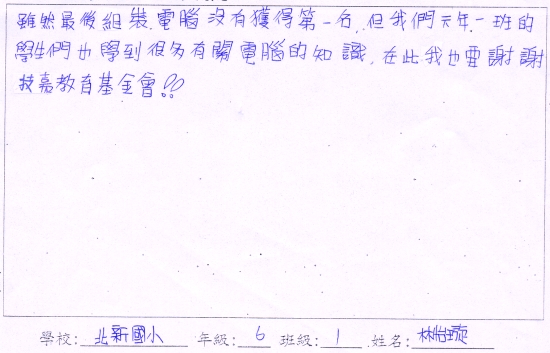 雖然最後組裝電腦沒有獲得第一名,但我們六年一班的
學生們也學到很多有關電腦的知識,在此我也要謝謝
技嘉教育基金會!!
學校: 北新國小 年級: 6 班級: 1 姓名: 林怡璇